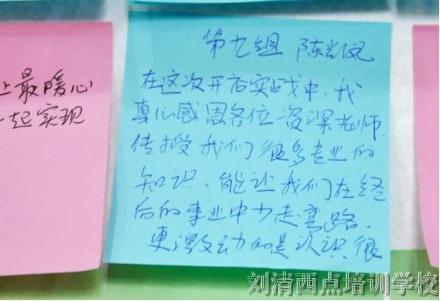 上最暖心
一起实现
第九组 陈先凤
在这次开店实战中，我
真心感恩各位资深老师
传授我们很多专业的
知识、能让我们在今
后的事业中少走弯路.
更激动的是认识很
刘清西点培训学校